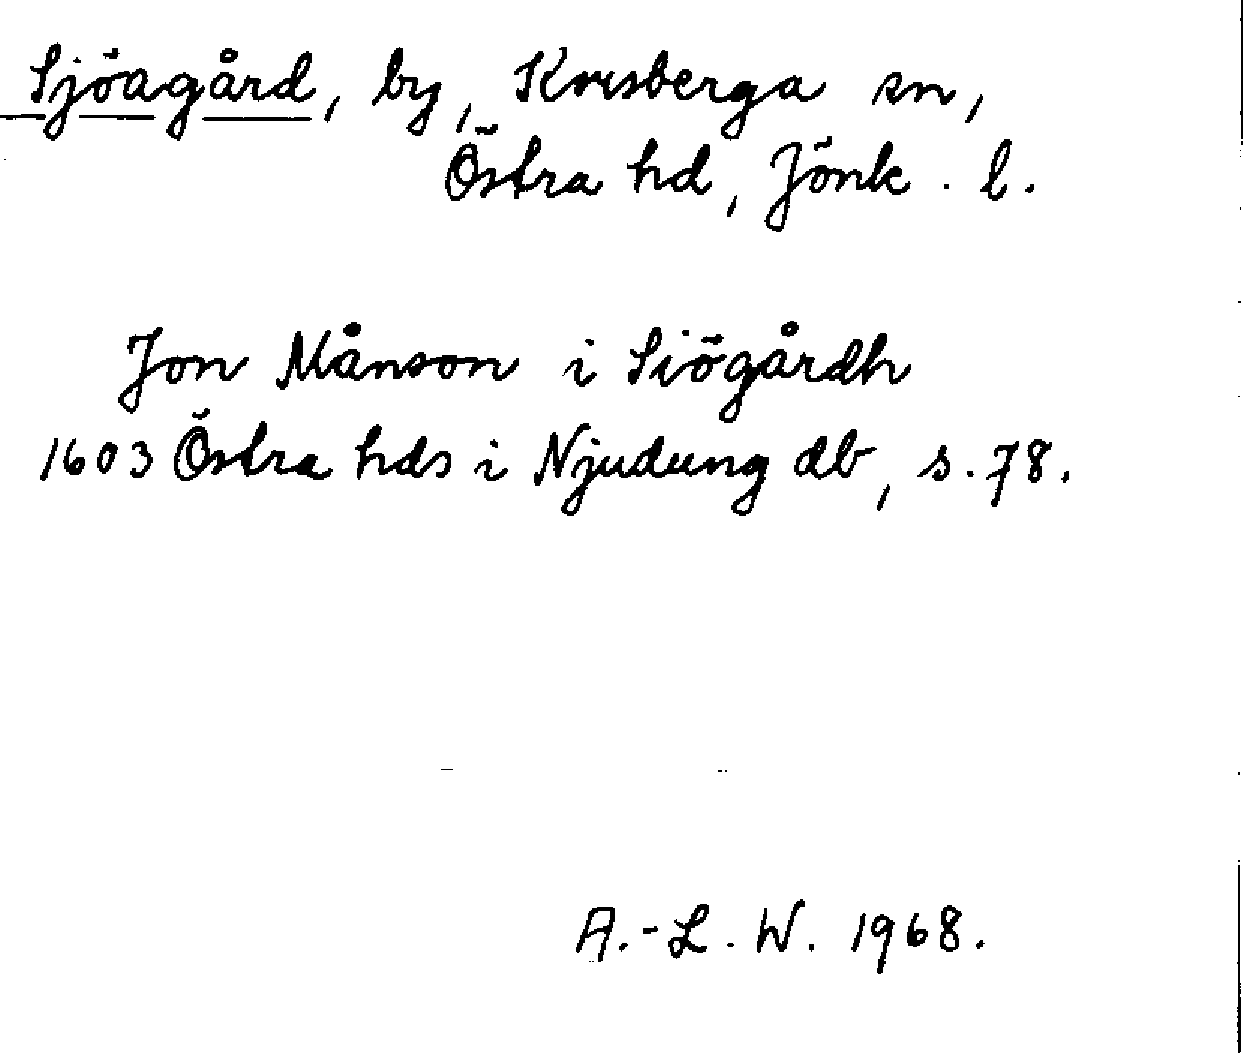 Sjöagård, by, Korsberga sn,
Östra hd, Jönk. l.
Jon Månson i Siögårdh
1603 Östra hds i Njudung db, s. 78.
A.-L. W. 1968.